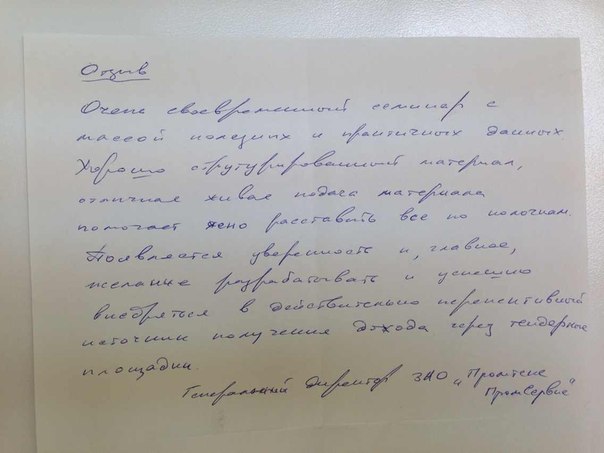 Отзыв
Очень своевременный семинар с
массой полезных и практичных данных.
Хорошо струтурированный материал,
отличная живая подача материала
помогает ясно расставить все по полочкам.
Появляется уверенность и, главное,
желание разрабатывать и успешно
внедряться в действительно перспективный
источник получения дохода через тендерные
площадки.
Генеральный директор ЗАО "
ПромСервис"